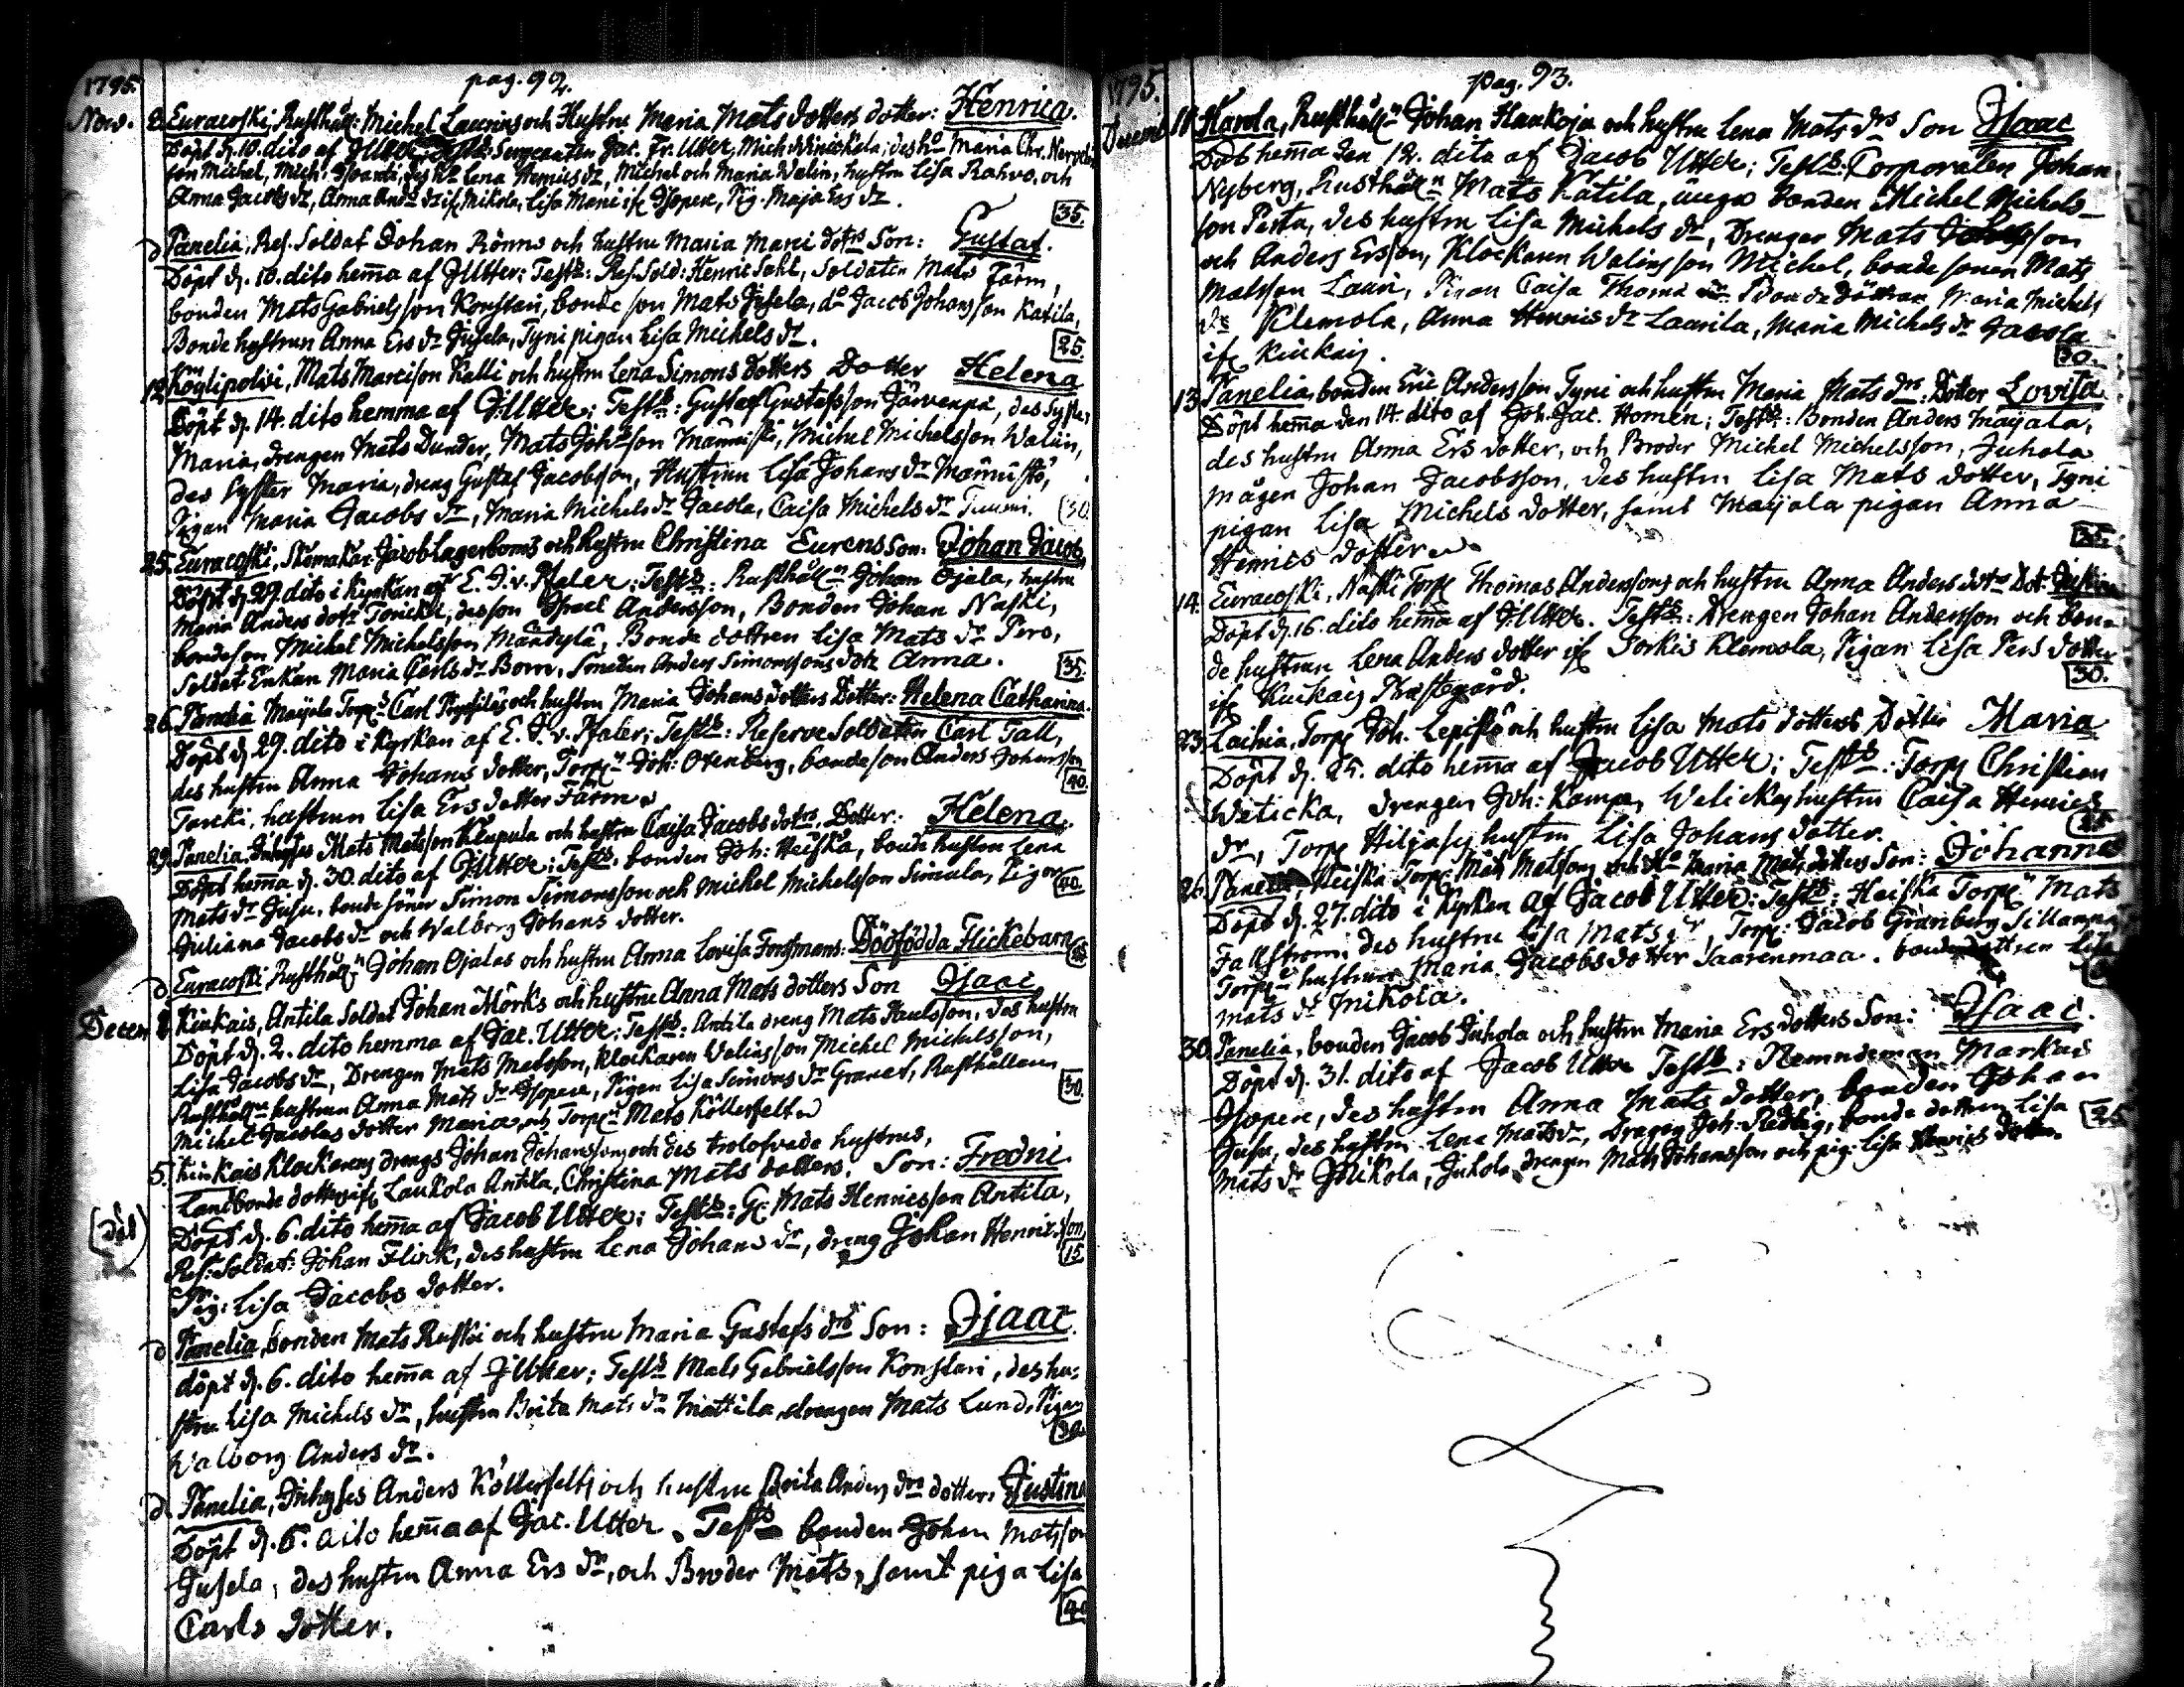 1795.
pag. 92.
Nov. 8. Euracoski, Rusthåll: Michel Laurins och Hustru Maria Mats dotters dotter: Henrica.
Döpt d. 10. dito af J Utter Sergeanten Jac. Fr. Utter, Mich. Maria Chr.
son Michel, Mich: Lena Henrics dr, Michel och Maria Walin, hustru Lisa Rahvo, och
Anna Jacobs dr, Anna And: Mikola, Lisa Isopere, Pig. Maja Ers dr.
35.
d Panelia, Res. Soldat Johan Rönns och hustru Maria Marci dotrs Son: Gustaf.
Döpt d. 10. dito hem̅a af J Utter; Test: Res. Sold: Henric Sahl, Soldaten Mats Färm,
bonden Mats Gabrielsson Konstari, bonde son Mats Jusela, do Jacob Johansson Katila,
Bonde hustrun Anna Ers dr Jusela, Tyni pigan Lisa Michels dr.
25.
12. Köylipolvi, Mats Marcison Kalli och hustru Lena Simons dotters Dotter Helena
Döpt d. 14. dito hemma af J: Utter; Test: Gustaf Gustafsson Järvenpä, des Syster
Maria, drengen Mats Dunder, Mats Joh:son Männistö, Michel Michelsson Walin,
des Syster Maria, dreng Gustaf Jacobsson, Hustrun Lisa Johans dr Männistö,
Pigan Maria Jacobs dr, Maria Michels dr Jacola, Caisa Michels dr Tuumi.
30.
25. Euracoski, Skomakar Jacob Lagerboms och hustru Christina Eurens Son: Johan Jacob
Döpt d. 29. dito i Kyrkan af E. J. v. Pfaler; Test: Rusthålln Johan Ojala, hustru
Maria Anders dotr Tonickel, des son Israel Andersson, Bonden Johan Naski,
bondeson Michel Michelsson Mändylä, Bonde dottren Lisa Mats dr Pero,
Soldat Enkan Maria Carls dr Born, Smeden Anders Simonssons dotr Anna.
35.
26. Panelia Maijala Torp: Carl och hustru Maria Johans dotters Dotter: Helena Catharina.
Döpt d. 29. dito i Kyrkan af E. J. v. Pfaler; Test: Reserve Soldaten Carl Tall,
des hustru Anna Johans dotter, Torp: Joh: Oxenberg, bondeson Anders Johansson
Tarcki, hustrun Lisa Ers dotter Färm.
40.
29. Panelia, Inhyses Mats Matsson Klupula och hustru Caisa Jacobs dotrs Dotter: Helena.
Döpt hem̅a d. 30. dito af J Utter; Test: bonden Joh: Heiska, bonde hustrun Lena
Mats dr Jusu, bonde söner Simon Simonsson och Michel Michelsson Simula, Pigor
Juliana Jacobs dr och Walborg Johans dotter.
40.
d Euracoski Rusthålln Johan Ojalas och hustru Anna Lovisa Forssmans: Dödfödda Flickebarn
Decem 1. Kiukais, Antila Soldat Johan Mörks och hustru Anna Mats dotters Son Isaac
Döpt d. 2. dito hemma af Jac. Utter; Test: Antila dreng Mats Paulsson, des hustru
Lisa Jacobs dr, Drengen Mats Matsson, Klockaren Walins son Michel Michelsson,
Rusthålln hustrun Anna Mats dr Isopere, Pigan Lisa Simons dr Granet, Rusthållaren
Michel Jacolas dotter Maria, och Torp: Mats Köllerfelt
30.
5. Kiukais Klockarens drengs Johan Johanssons och des trolofvade hustrus,
Landbonde dotters if: Laukola Antila, Christina Mats dotters, Son: Fredric
Döpt d. 6. dito hem̅a af Jacob Utter; Test: G: Mats Henricsson Antila,
Res: Soldat: Johan Flinck, des hustru Lena Johans dr, dreng Johan Henricsson,
Pig: Lisa Jacobs dotter.
15.
d Panelia, bonden Mats Russi och hustru Maria Gustafs drs Son: Isaac.
döpt d. 6. dito hem̅a af J Utter; Test: Mats Gabrielsson Konstari, des hu:
stru Lisa Michels dr, hustru Brita Mats dr Mattila, drengen Mats Lund, Pigan
Walborg Anders dr.
30.
d Panelia, Inhyses Anders Köllerfelts och hustru Brita Anders drs dotter: Justina
Döpt d. 6. dito hem̅a af Jac. Utter. Test: bonden Johan Matsson
Jusela, des hustru Anna Ers dr, och Broder Mats, samt piga Lisa
Carls dotter.
40
1795.
pag. 93.
Decemb. Harola, Rusthålln Johan Haukoja och hustru Lena Mats drs Son Isaac
Döb hem̅a den 12. dito af Jacob Utter; Test: Corporalen Johan
Nyberg, Rusthålln Mats Kätila, unga bonden Michel Michels-
son Perta, des hustru Lisa Michels dr, Drenger Mats
och Anders Ersson, Klockaren Walins son Michel, bonde sonen Mats
Matsson Lauri, Pigan Caisa Thoma dr Bonde döttrar Maria Michels
dr Klemola, Anna Henrics dr Laurila, Maria Michels dr Jacola
if: Kiukais.
30.
13. Panelia, bonden Eric Andersson Tyni och hustru Maria Mats drs: Dotter Lovisa
Döpt hem̅a den 14. dito af Joh. Jac. Homén; Test: Bonden Anders Maijala,
des hustru Anna Ers dotter, och Broder Michel Michelsson, Juhola
mågen Johan Jacobsson, des hustru Lisa Mats dotter, Tyni
pigan Lisa Michels dotter, samt Maijala pigan Anna
Henrics dotter.
35.
14. Euracoski, Naski Torp: Thomas Anderssons och hustru Anna Anders dotrs Dot:
Döpt d. 16. dito hem̅a af J: Utter. Test: Drengen Johan Andersson och bon-
de hustrun Lena Anders dotter if: Sorkis Klemola, Pigan Lisa Pers dotter
if: Kiukais Prästegård.
30.
23. Laihia, Torp: Joh. Lepistö och hustru Lisa Mats dotters Dotter Maria
Döpt d. 25. dito hem̅a af Jacob Utter; Test: Torp: Christian
Weticka, drengen Joh: Kamp, Welickas hustru Caisa Henrics
dr, Torp: Hiljas hustru Lisa Johans dotter.
25
26. Panelia Heiska Torp: Mats Matssons och Ho Maria Mats dotters Son: Johannes
Döpt d. 27. dito i Kyrkan af Jacob Utter; Test: Heiska Torp: Mats
Fallström, des hustru Lisa Mats dr, Torp: Jacob Granberg
Torp: hustrun Maria Jacobs dotter Saarenmaa. bonde dottren Lisa
Mats dr Mikola.
30. Panelia, bonden Jacob Juhola och hustru Maria Ers dotters Son: Isaac.
Döpt d. 31. dito af Jacob Utter Test: Nemndeman Markus
Isopere, des hustru Anna Mats dotter, bonden Johan
Jusu, des hustru Lena Mats dr, Dragon Joh: Redlig, bonde dottren Lisa
Mats dr Mikola, Juhola drengen Mats Johansson och pig: Lisa Henrics dotter.
25